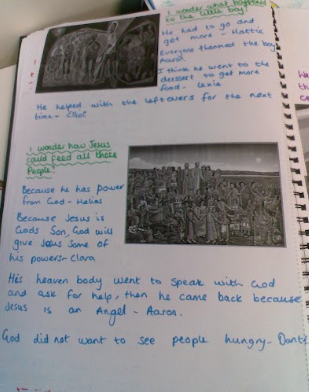 I wonder what happened
to the little boy?
He had to go and
get more - Hattie
Everyone thanned the boy
Aaron.
I think he went to the
dessert to get more
food - Lexie
He helped with the leftovers for the next
time - Elliot
I wonder how Jesus
could feed all those
People?
Because he has power
from God - Helias
Because Jesus is
Gods Son, God will
give Jesus some of
his powers - Clara
His heaven body went to speak with God
and ask for help, then he came back because
Jesus is an Angel - Aaron.
God did not want to see people hungry - Dante